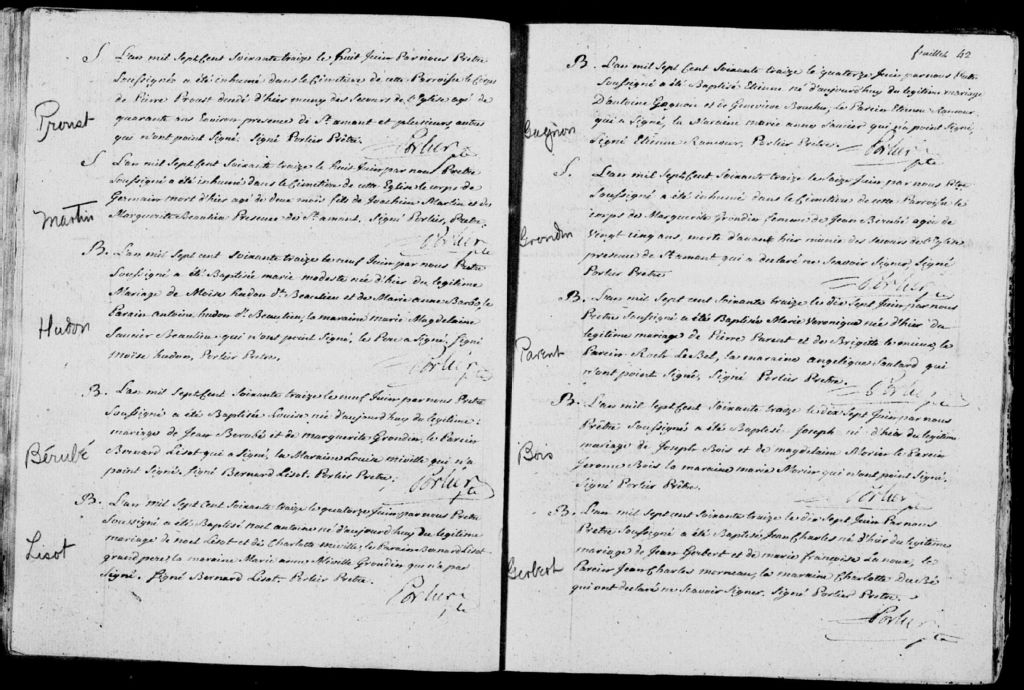 S L'an mil Sept Cent Soixante traize le huit Juin Par nous Pretre
Soussigné a été inhumé dans le Cimitiere de cette Parroisse le Corps
Proust
de Pierre Proust décédé d'hier muny des Secours de l'Eglise agé de
quarante ans Environ presence de St amant et plusieurs autres
qui n'ont point Signé. Signé Porlier Prêtre.
Porlier ptre
S L'an mil Sept Cent Soixante traize le huit Juin par nous Pretre
Soussigné a été inhumé dans le Cimitiere de cette Eglise le corps de
Martin
Germain mort d'hier agé de deux mois fils de Joachim Martin et de
Marguerite Beaulieu Presence de St amant. Signé Porlier, Pretre.
Porlier ptre
B. L'an mil Sept cent Soixante traize le neuf Juin par nous Pretre
Soussigné a été Baptisée marie modeste née d'hier du legitime
Mariage de Moïse hudon dt Beaulieu et de Marie anne le
Hudon
Parain Antoine hudon dt Beaulieu, la maraine marie Magdelaine
Saucier Beaulieu qui n'ont point Signé, le Pere a Signé, Signé
moïse hudon, Porlier Pretre,
Porlier ptre
B. L'an mil Sept Cent Soixante traize le neuf Juin par nous Pretre
Soussigné a été Baptisée Louise née d'aujourd'huy du legitime
mariage de Jean Berubé et de marguerite Grondin, le Parein
Bérubé
Bernard Lisot qui a Signé, la Maraine Louise miville qui n'a
point Signé, Signé Bernard Lisot. Porlier Pretre,
Porlier ptre
B. L'an mil Sept Cent Soixante traize le quatorze Juin par nous Pretre
Soussigné a été Baptisé noel antoine né d'aujourd'huy du legitime
mariage de noel Lisot et de Charlotte miville, le Paraine Bernard Lisot
Lisot
grand pere la maraine Marie anne Miville Grondin qui n'a pas
Signé, Signé Bernard Lisot. Porlier Pretre.
Porlier ptre
feuillet 42
B. L'an mil Sept Cent Soixante traize le quatorze Juin par nous Pretre
Soussigné a été Baptisé Etienne né d'aujourd'huy du legitime mariage
D'antoine Gagnon et de Geneviève Boucher, le Parein Etienne Rancour
Gagnon
qui a Signé, la Maraine marie anne Saucier qui n'a point Signé,
Signé Etienne Rancour. Porlier Pretre.
Porlier ptre
S. L'an mil Sept Cent Soixante traize le Saize Juin par nous Ptre
Soussigné a été inhumé dans le Cimitiere de cette Parroisse le
Grondin
corps de Marguerite Grondin femme de Jean Berubé agée de
Vingt cinq ans, morte d'avant hier munie des Secours de l'Eglise
presence de St amant qui a declaré ne Scavoir Signer, Signé
Porlier Pretre
Porlier ptre
B. L'an mil Sept cent Soixante traize le dix Sept Juin, par nous
Pretre Soussigné a été Baptisée Marie Veronique née d'hier du
legitime mariage de Pierre Parent et de Brigitte le
Parent
Parein Roch LeBel, la maraine angelique Soulard qui
n'ont point Signé, Signé Porlier Pretre.
Porlier ptre
B. L'an mil Sept Cent Soixante traize le dix Sept Juin par nous
Prêtre Soussigné a été Baptisé Joseph né d'hier du legitime
Bois
mariage de Joseph Bois et de magdelaine Morier le Parein
Gerome Bois la maraine marie Morier qui n'ont point Signé.
Signé Porlier Prêtre.
Porlier ptre
B. L'an mil Sept cent Soixante traize le dix Sept Juin Par nous
Pretre Soussigné a été Baptisé Jean Charles né d'hier du legitime
mariage de Jean Gerbert et de marie francoise Lanoux, le
Gerbert
Parein Jean Charles morneau, la maraine Charlotte DuBé
qui ont declaré ne Scavoir Signer. Signé Porlier Pretre.
Porlier ptre